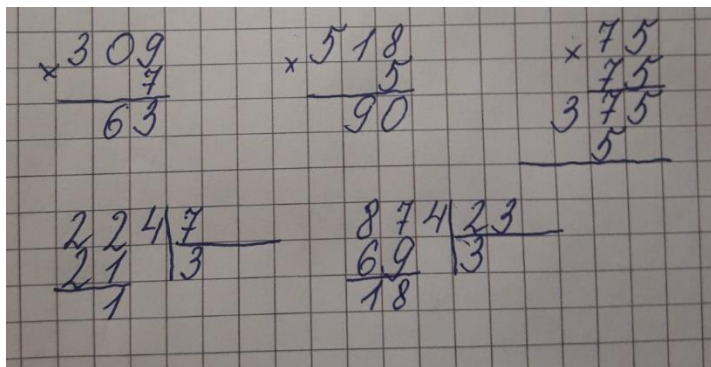 × 309
7
63
× 518
5
90
× 75
75
375
5
224 | 7
21 | 3
1
874 | 23
69 | 3
18